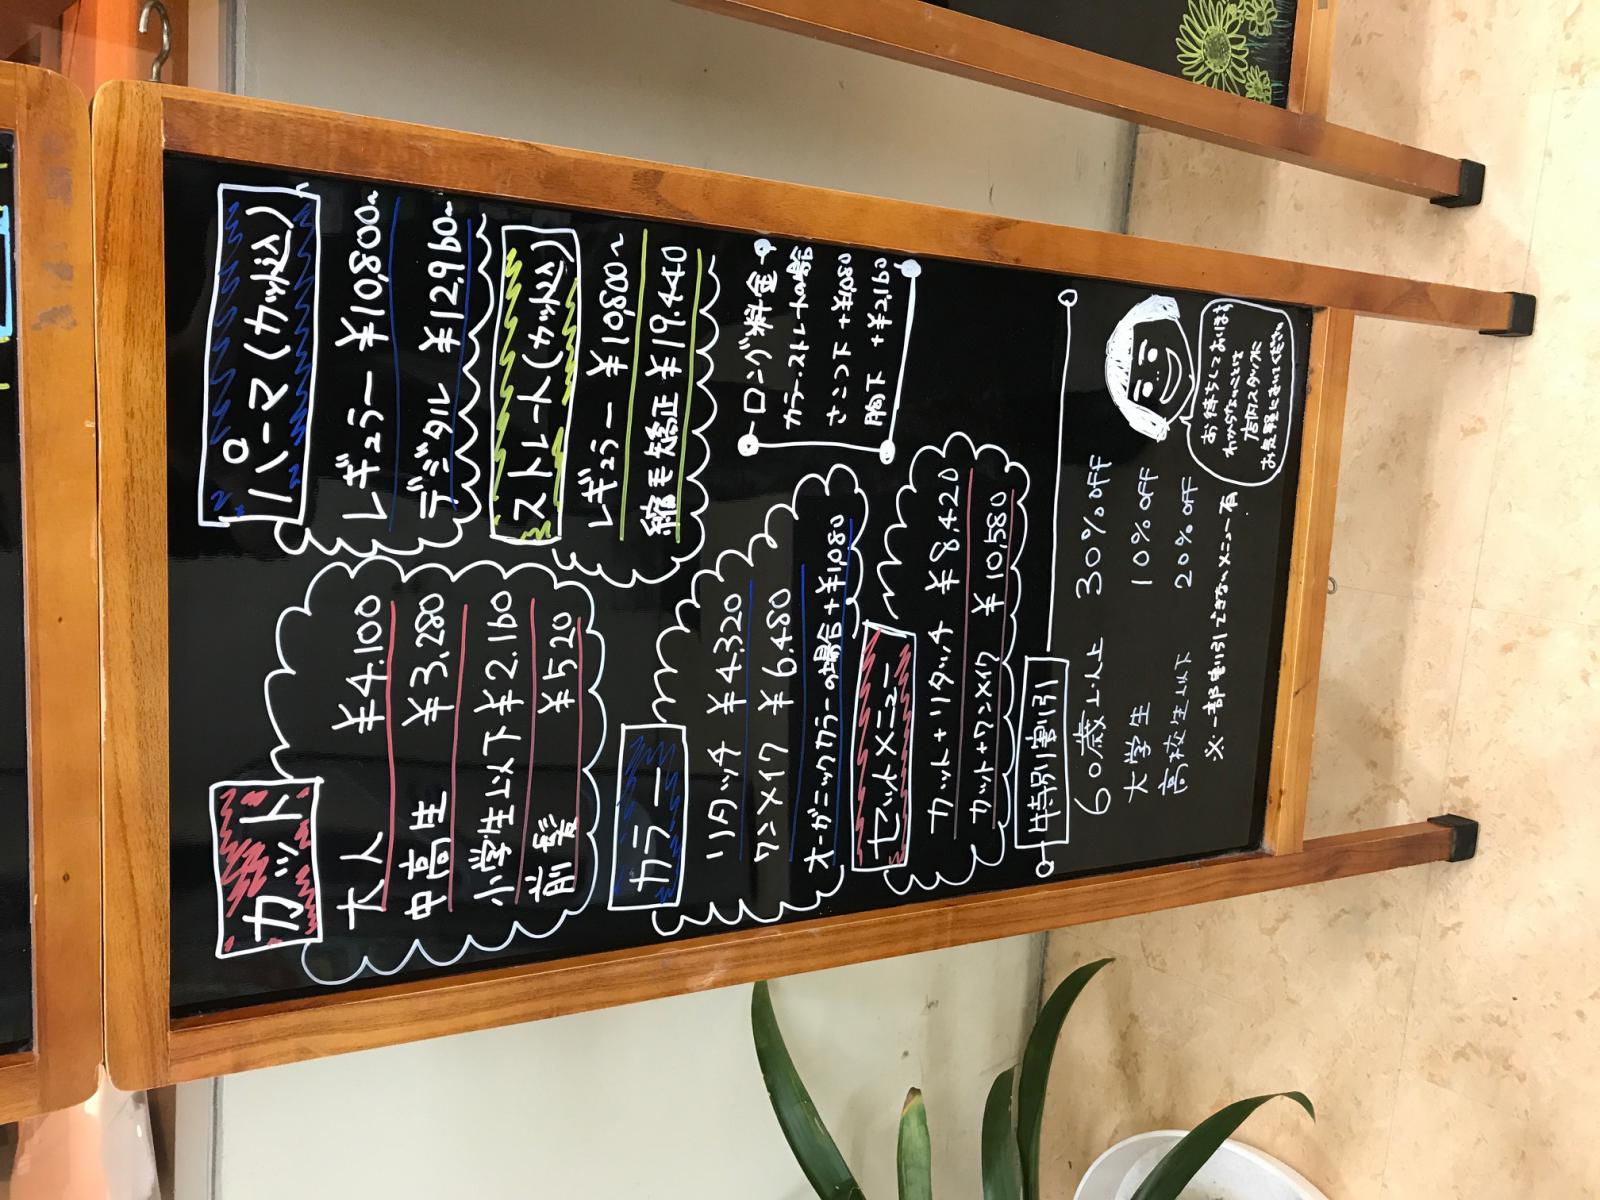 カット
大人 ¥4.100
中高生 ¥3,280
小学生以下 ¥2.160
前髪 ¥520
パーマ(カット込)
レギュラー ¥10,800~
デジタル ¥12,960~
ストレート(カット込)
レギュラー ¥10,800~
縮毛矯正 ¥19.440
ロング料金
カラー・ストレートの場合
さこつ下 +¥1,080
胸下 +¥2,160
カラー
リタッチ ¥4,320
ワンメイク ¥6,480
オーガニックカラーの場合+¥1,080
セットメニュー
カット+リタッチ ¥8,420
カット+ワンメイク ¥10,580
特別割引
60歳以上 30%OFF
大学生 10%OFF
高校生以下 20%OFF
※一部割引できないメニュー有
お待ちしております
わからないことは
店内スタッフに
お気軽にきいてください